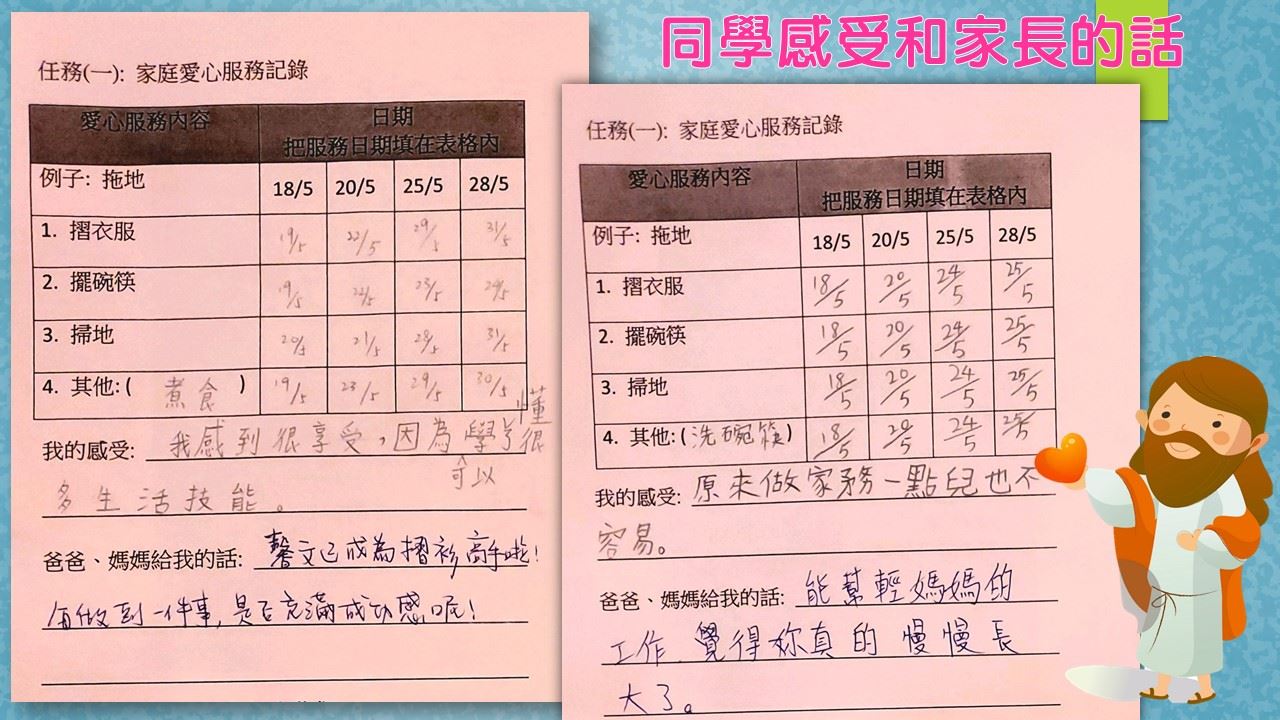 同學感受和家長的話
任務(一): 家庭愛心服務記錄
愛心服務內容 日期
把服務日期填在表格內
例子: 拖地 18/5 20/5 25/5 28/5
1. 摺衣服 19/5 22/5 29/5 31/5
2. 擺碗筷 19/5 22/5 23/5 29/5
3. 掃地 20/5 21/5 28/5 31/5
4. 其他: ( 煮食 ) 19/5 23/5 29/5 30/5
我的感受: 我感到很享受,因為可以學懂很
多生活技能。
爸爸、媽媽給我的話: 馨文已成為摺衫高手啦!
每做到一件事,是否充滿成功感呢!
任務(一): 家庭愛心服務記錄
愛心服務內容 日期
把服務日期填在表格內
例子: 拖地 18/5 20/5 25/5 28/5
1. 摺衣服 18/5 20/5 24/5 25/5
2. 擺碗筷 18/5 20/5 24/5 25/5
3. 掃地 18/5 20/5 24/5 25/5
4. 其他: (洗碗筷) 18/5 20/5 24/5 25/5
我的感受: 原來做家務一點兒也不
容易。
爸爸、媽媽給我的話: 能幫輕媽媽的
工作,覺得妳真的慢慢長
大了。